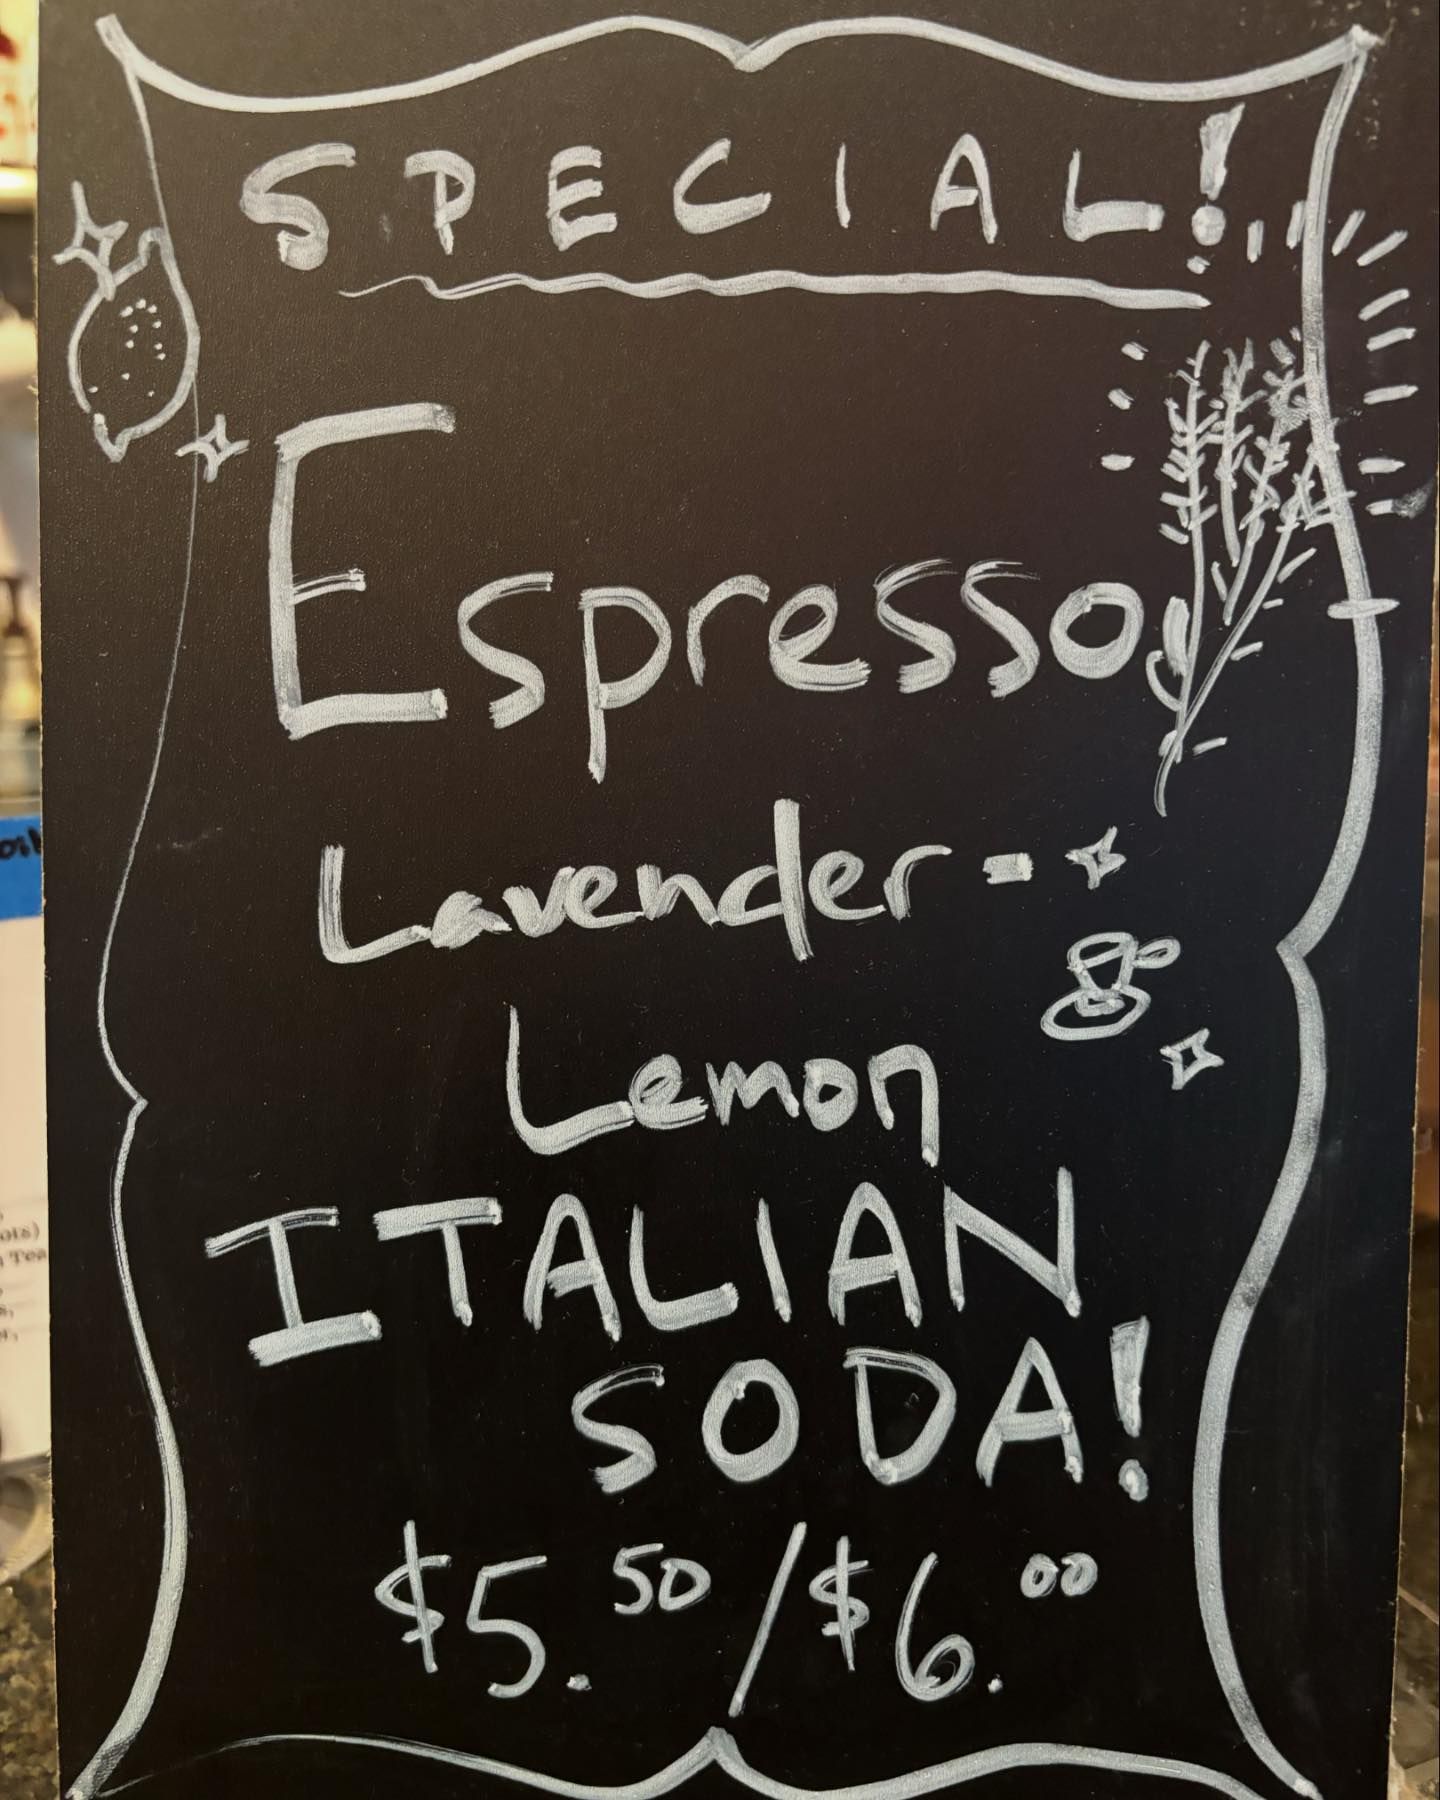 SPECIAL!
Espresso
Lavender -
Lemon
ITALIAN
SODA!
$5.50 / $6.00